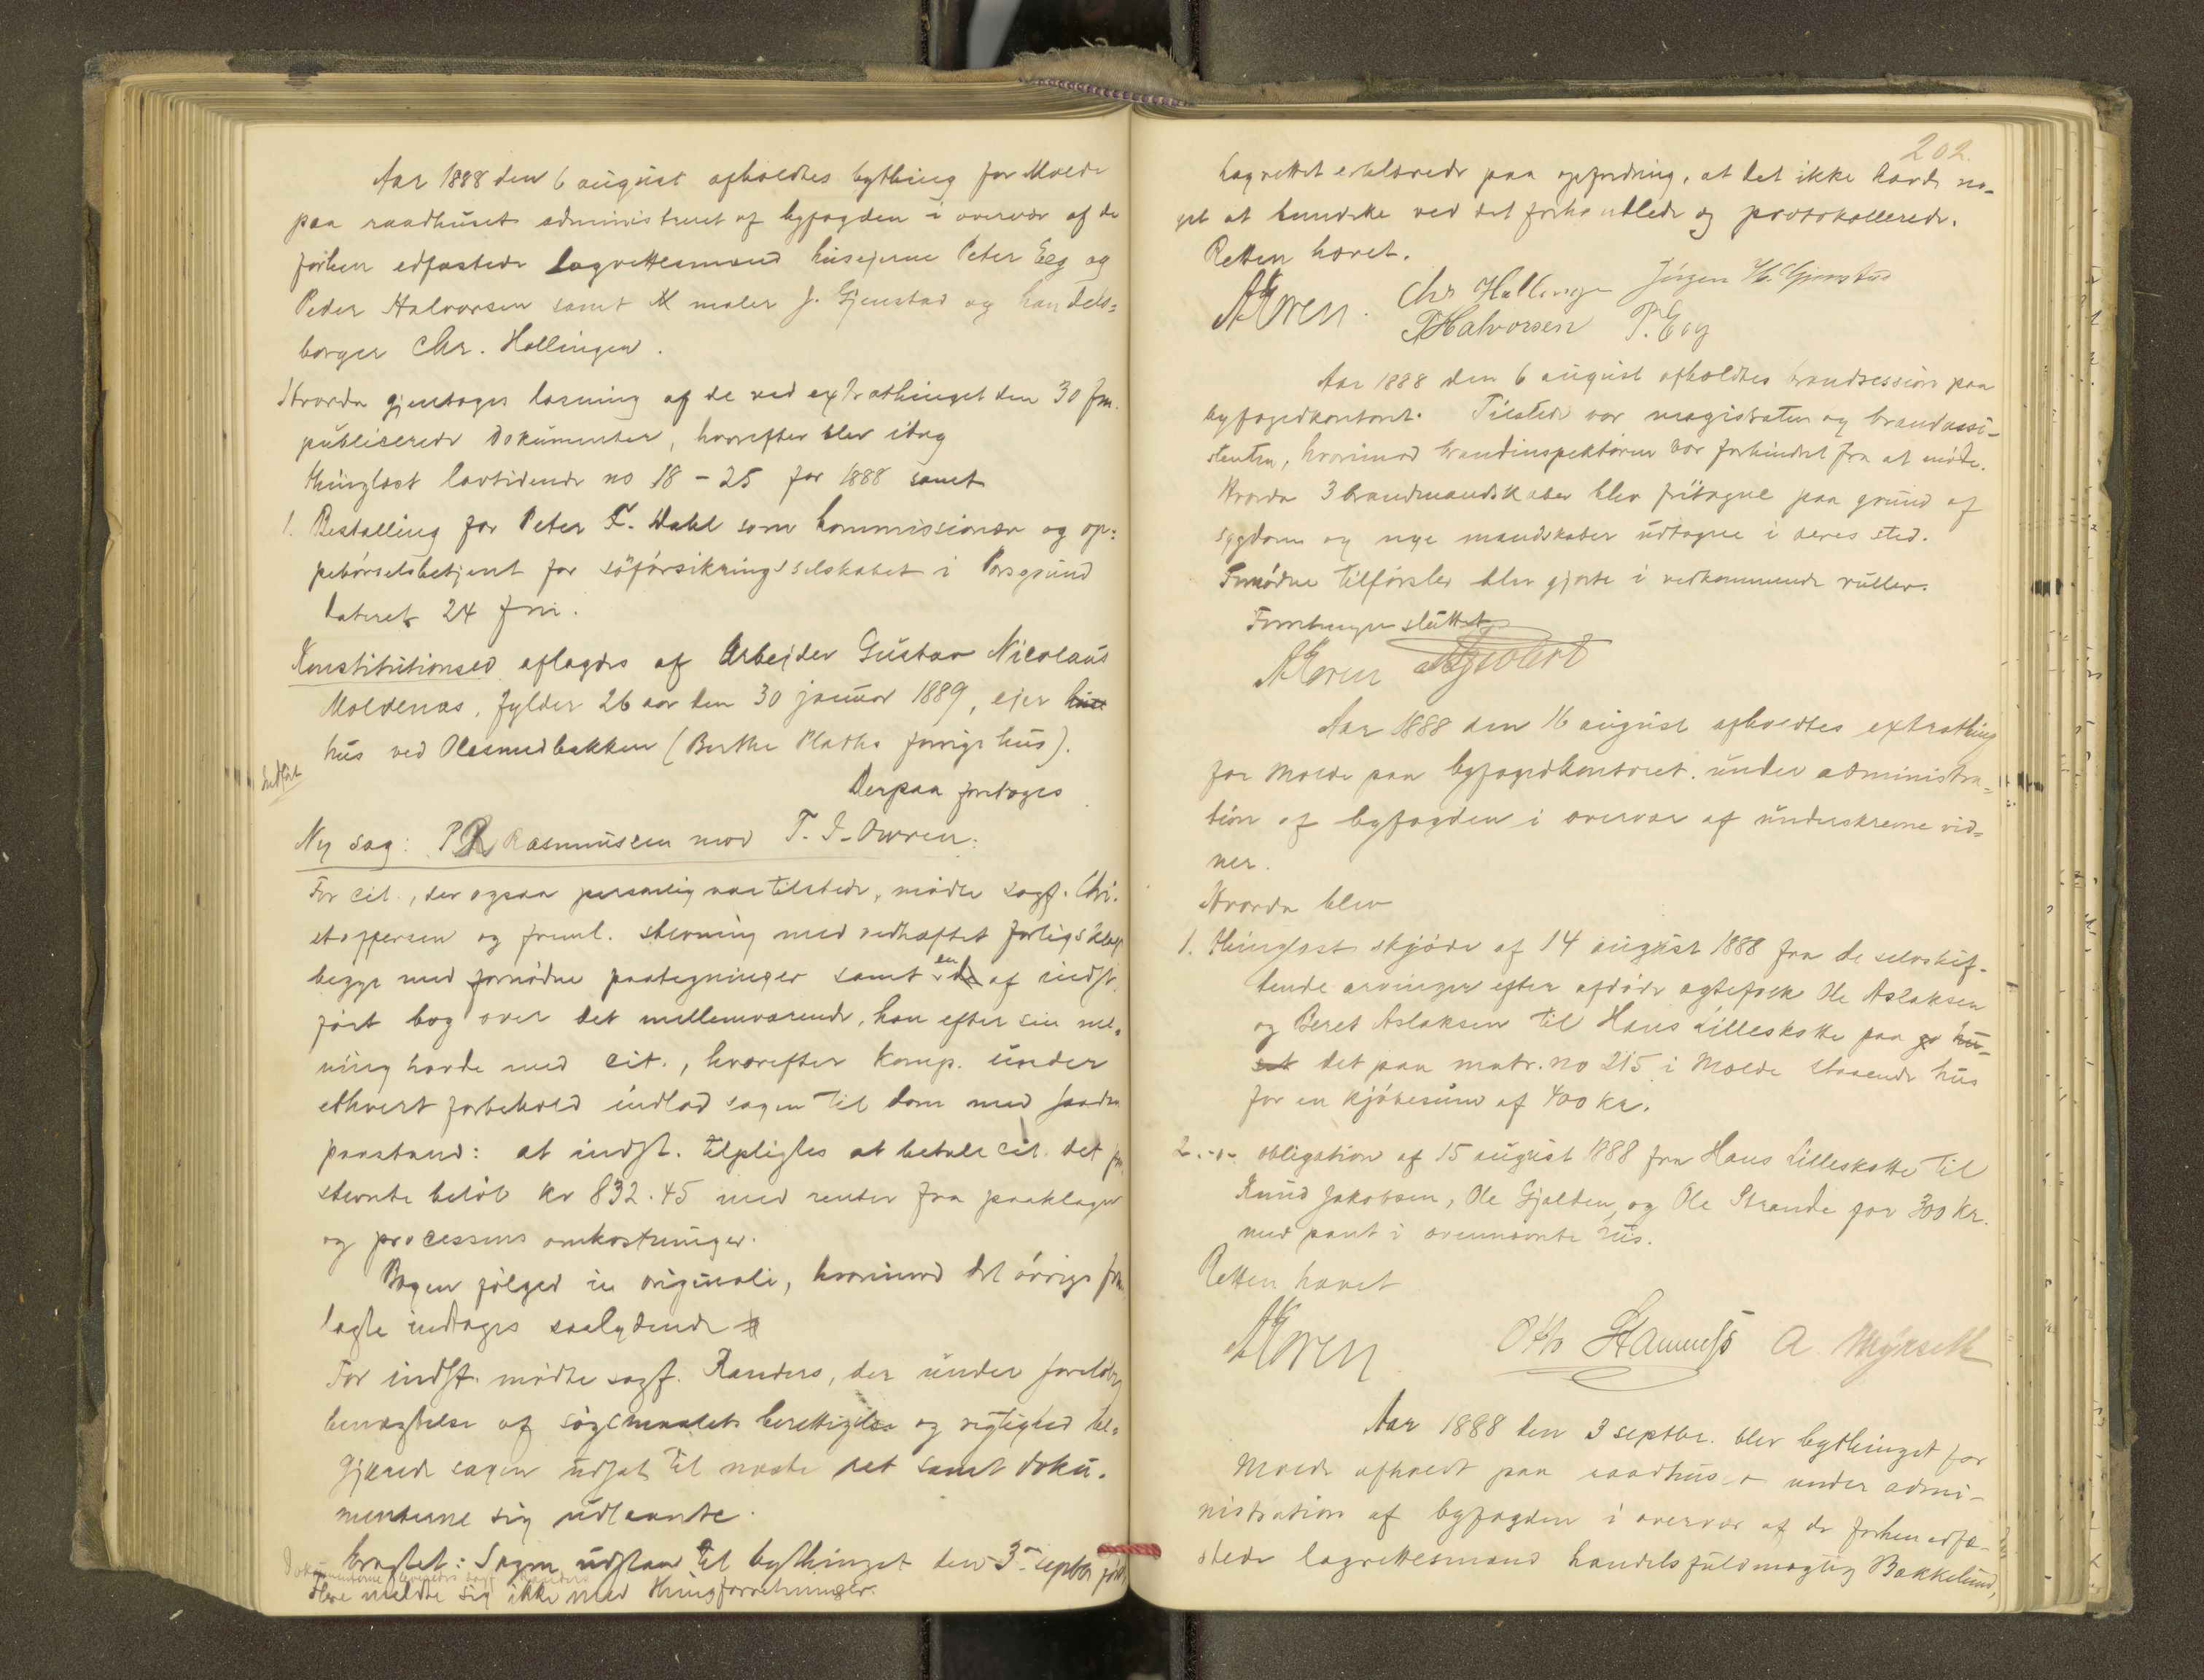 Aar 1888 den 6 august afholdtes bything for Molde
paa raadhuset administreret af byfogden i overvær af de
forhen edfæstede lagrettesmænd huseierne Peter Eeg og
Peder Halvorsen samt maler J. Gjenstad og handels-
borger Chr. Hollingen.
Hvorda gjentoges læsning af de ved extrathinget den 30 f.m.
publicerede dokumenter, hvorefter blev idag
thinglæst lovtidende no 18 - 25 for 1888 samt
1. Bestalling for Peter F. Dahl som kommissionær og op-
pebørselsbetjent for søforsikringsselskabet i Porsgrund
dateret 24 juni.
Konstitutionsed aflagdes af Arbejder Gustav Nicolaus
Moldenæs, fylder 26 aar den 30 januar 1889, ejer
hus ved Olasmedbakken (Berthe forrige hus).
Derpaa foretoges
Indført
Ny sag: P R Rasmussen mod T. I. Owren:
For cit., der ogsaa personlig var tilstede, mødte sagf. Chri-
stoffersen og freml. stevning med vedhæftet forligsklage
begge med fornødne paategninger samt en af indst.
ført bog over det mellemværende, han efter sin me-
ning havde med cit., hvorefter komp. under
ethvert forbehold indlod sagen til dom med saadan
paastand: at indst. tilpligtes at betale cit. det
stevnte beløb kr 832.45 med renter fra paaklagen
og processens omkostninger.
Bogen følger in originali, hvorimod det øvrige frem-
lagte indtages saalydende #
For indst. mødte sagf. Randers, der under foreløbig
benægtelse af søgsmaalets berettigelse og rigtighed be-
gjærede sagen udsat til næste ret samt doku-
menterne sig udlaante.
Eragtet: Sagen udstaar til bythinget den 3 septbr førstk.
Dokumenterne leveredes sagf. Randers
Flere meldte sig ikke med thingforretninger.
202.
Lagrettet erklærede paa opfordring, at det ikke havde no-
get at bemærke ved det forhandlede og protokollerede.
Retten hævet.
AKoren. Chr Hollingen Jørgen H. Gjenstad
PHalvorsen P. Eeg
Aar 1888 den 6 august afholdtes brandsession paa
byfogedkontoret. Tilstede var magistraten og brandassi-
stenten, hvorimod brandinspektøren var forhindret fra at møde.
Hvorda 3 brandmandskaber blev fritagne paa grund af
sygdom og nye mandskaber udtagne i deres sted.
Fornødne tilførsler blev gjorte i vedkommende ruller.
Forretningen sluttet
AKoren
Aar 1888 den 16 august afholdtes extrathing
for Molde paa byfogedkontoret under administra-
tion af byfogden i overvær af underskrevne vid-
ner.
Hvorda blev
1. Thinglæst skjøde af 14 august 1888 fra de selvskif-
tende arvinger efter afdøde ægtefolk Ole Aslaksen
og Beret Aslaksen til Hans Lilleskotte paa
det paa matr. no 215 i Molde staaende hus
for en kjøbesum af 400 kr.
2. -"- obligation af 15 august 1888 fra Hans Lilleskotte til
Knud Jakobsen, Ole Gjelden og Ole Strande for 300 kr.
med pant i ovennævnte hus.
Retten hævet
AKoren Otto A. Myrseth
Aar 1888 den 3 septbr. blev bythinget for
Molde afholdt paa raadhuset under admi-
nistration af byfogden i overvær af de forhen edfæ-
stede lagrettesmænd handelsfuldmægtig Bakkelund,